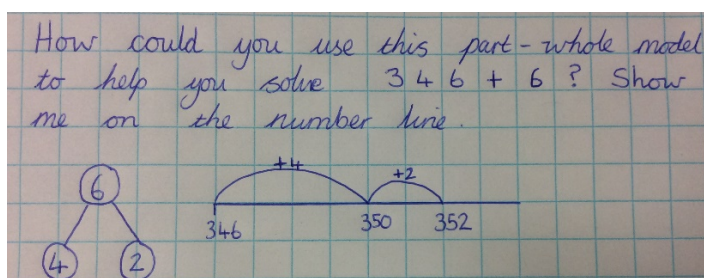 How could you use this part-whole model
to help you solve 346 + 6? Show
me on the number line.
+4 +2
6
346 350 352
4 2